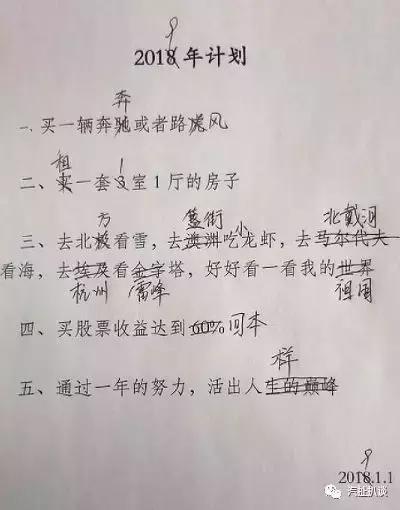 9
2018年计划
奔
一、买一辆奔驰或者路虎风
租 1
二、买一套3室1厅的房子
方 簋街 小 北戴河
三、去北极看雪，去澳洲吃龙虾，去马尔代夫
看海，去埃及看金字塔，好好看一看我的世界
杭州 雷峰 祖国
四、买股票收益达到60%回本
样
五、通过一年的努力，活出人生的巅峰
9
2018.1.1
汽扯扒谈